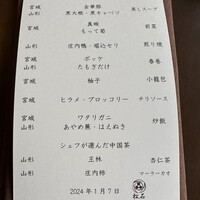 宮城 金華豚 蒸しスープ
山形 黒大根・黒キャベツ
宮城 真鯛 前菜
もって菊
山形 庄内鴨・堀込セリ 煎り焼
宮城 ボッケ 春巻
山形 たもぎだけ
宮城 柚子 小籠包
宮城 ヒラメ・ブロッコリー チリソース
宮城 ワタリガニ 炒飯
山形 あやめ蕪・はえぬき
シェフが選んだ中国茶
山形 王林 杏仁茶
山形 庄内柿 マーラーカオ
2024年1月7日
松石